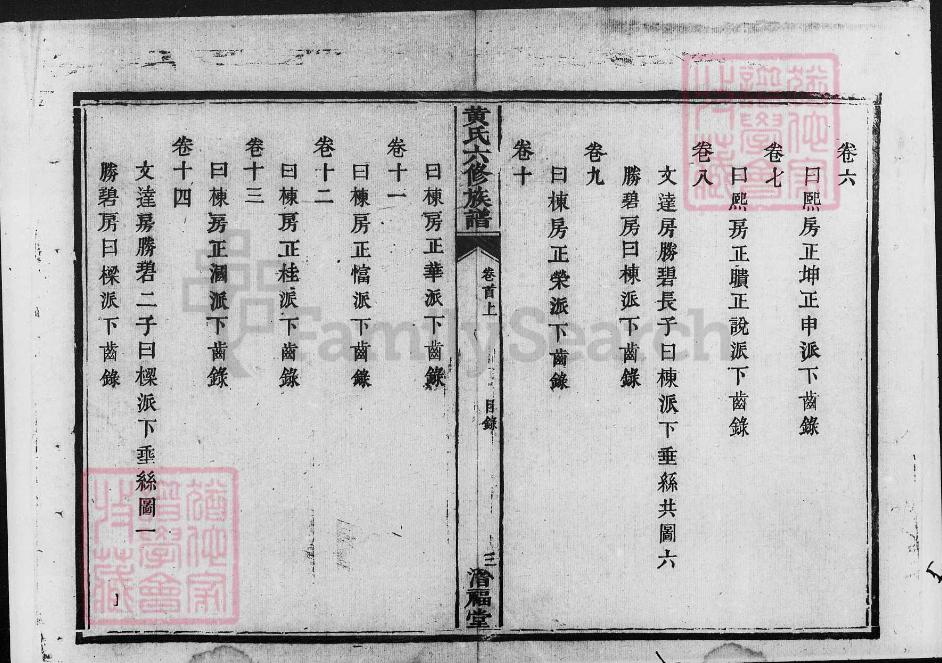 卷六
曰熙房正坤正申派下齒錄
卷七
曰熙房正賾正說派下齒錄
卷八
文達房勝碧長子曰棟派下垂絲共圖六
勝碧房曰棟派下齒錄
卷九
曰棟房正榮派下齒錄
卷十
黃氏六修族譜
卷首上
目錄
三
濳福堂
曰棟房正華派下齒錄
卷十一
曰棟房正愭派下齒錄
卷十二
曰棟房正桂派下齒錄
卷十三
曰棟房正派下齒錄
卷十四
文達房勝碧二子曰樑派下垂絲圖一
勝碧房曰樑派下齒錄
FamilySearch